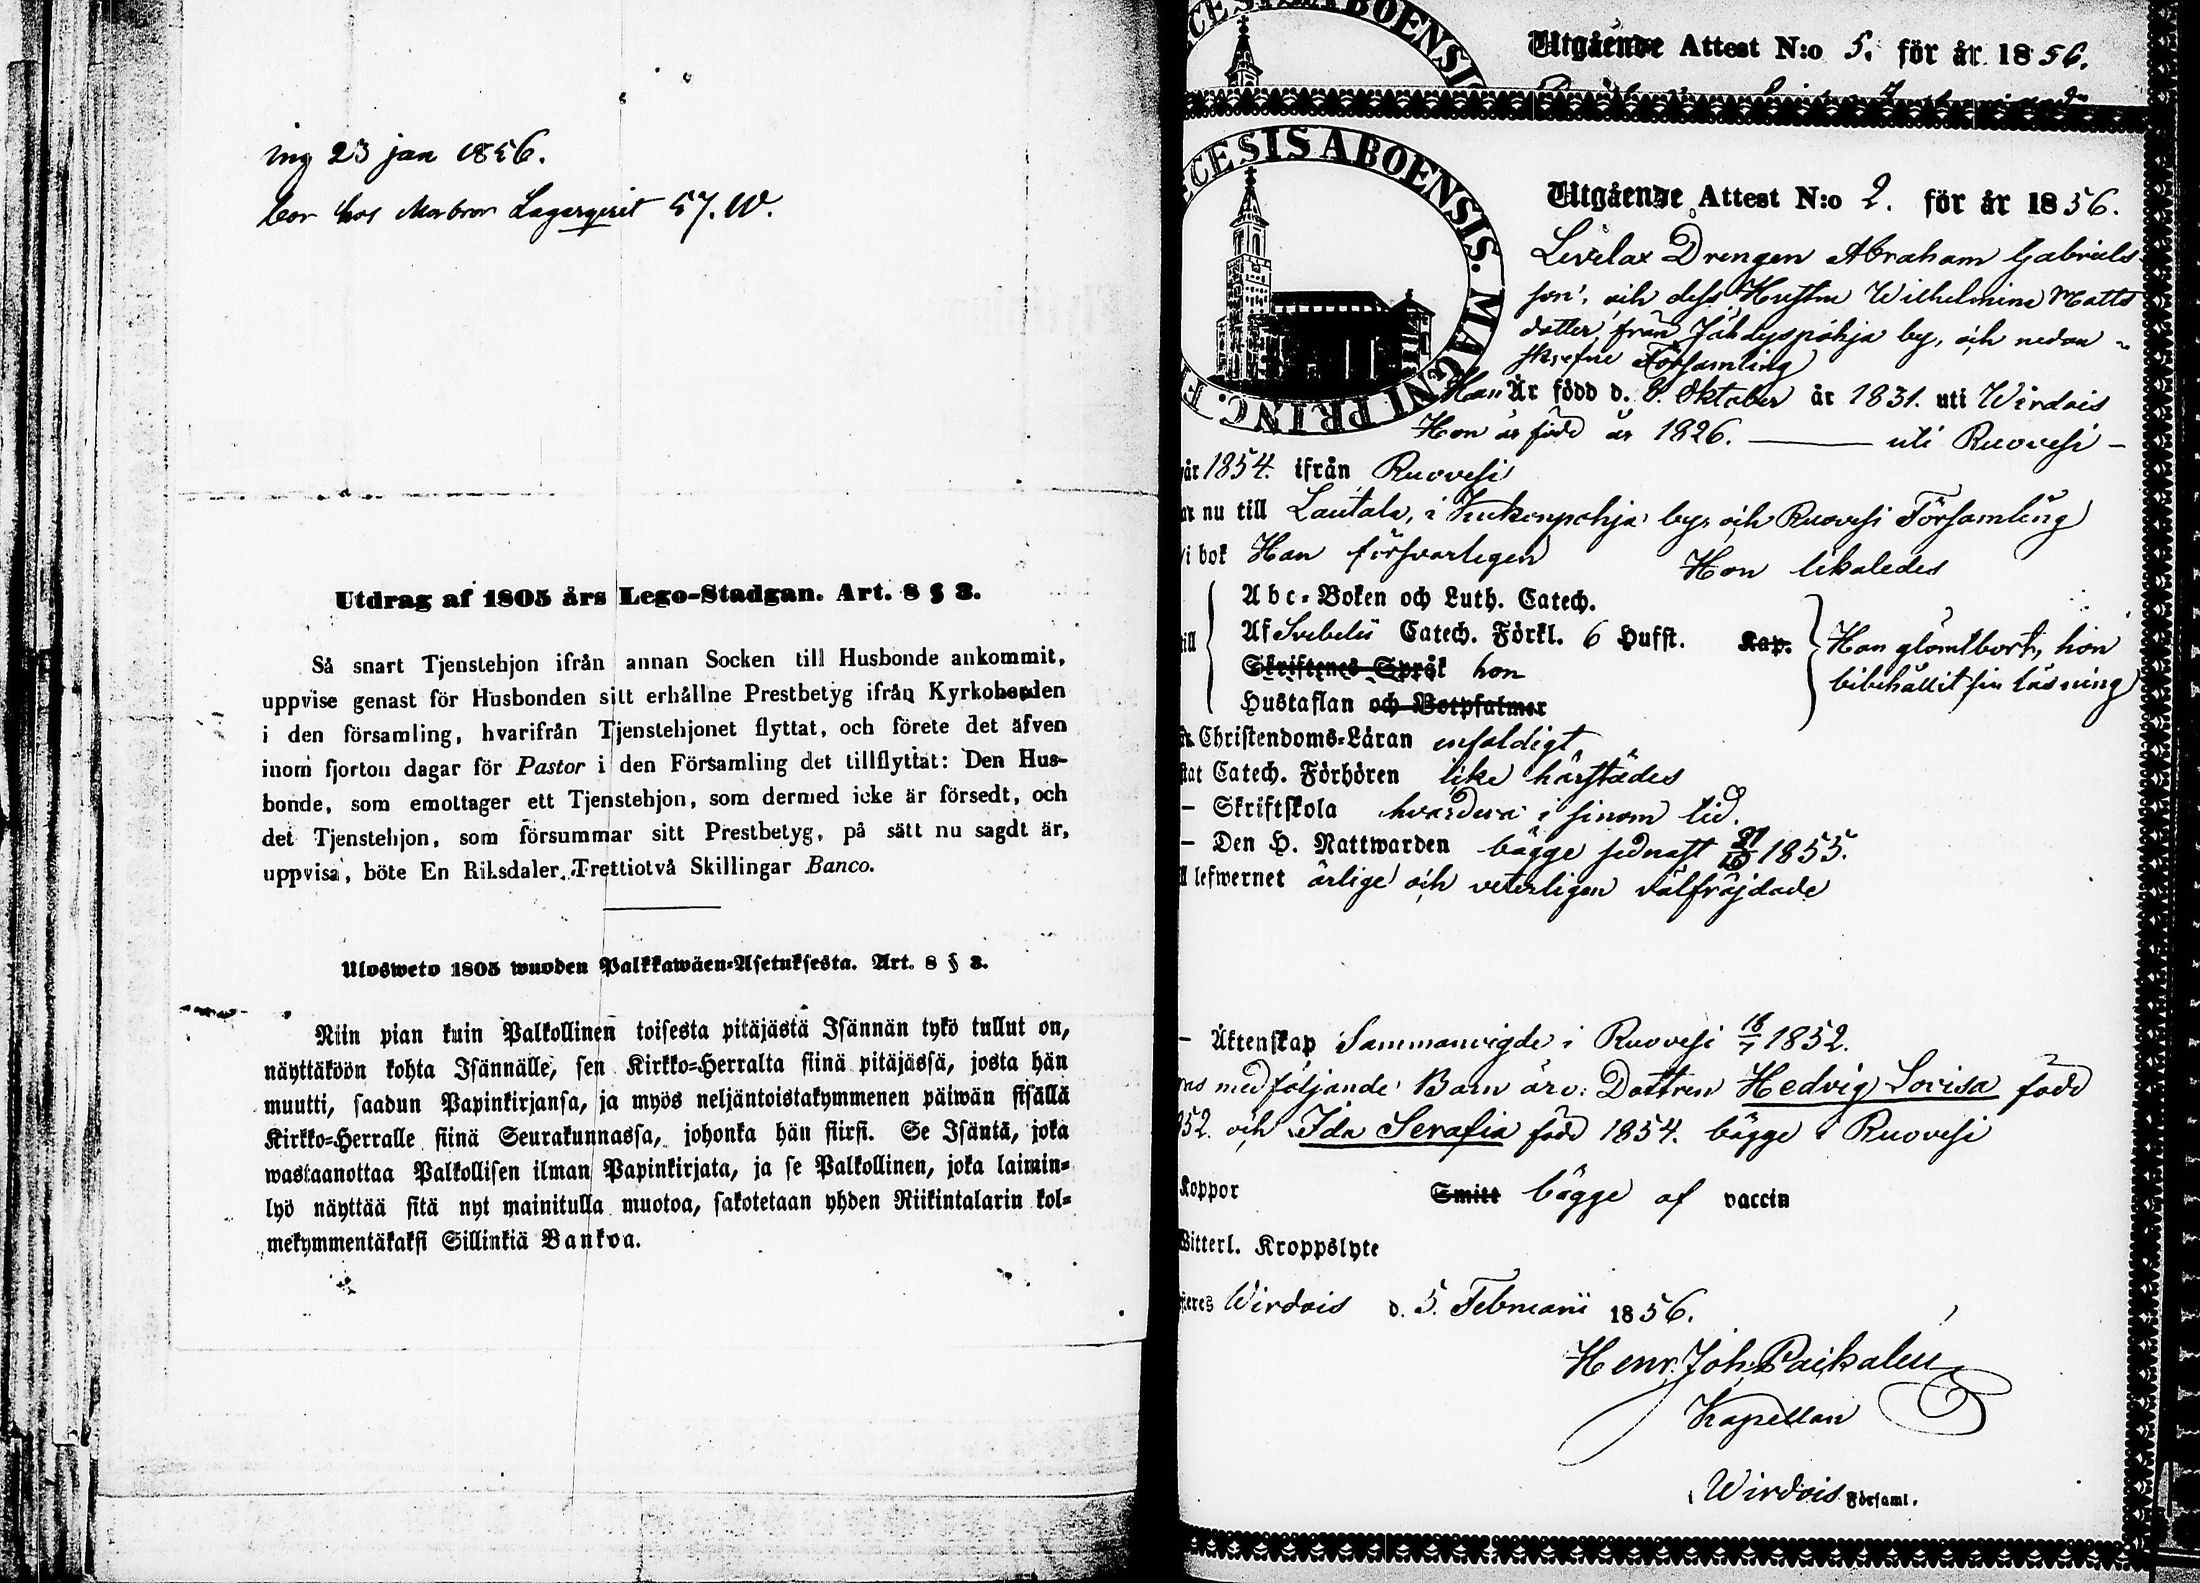 ing 23 jan 1856.
bor hos Morbror Lagerqvist 57. W.
Utdrag af 1805 års Lego-Stadgan. Art. 8 § 3.
Så snart Tjenstehjon ifrån annan Socken till Husbonde ankommit,
uppvise genast för Husbonden sitt erhållne Prestbetyg ifrån Kyrkoherden
i den församling, hvarifrån Tjenstehjonet flyttat, och förete det äfven
inom fjorton dagar för Pastor i den Församling det tillflyttat: Den Hus-
bonde, som emottager ett Tjenstehjon, som dermed icke är försedt, och
det Tjenstehjon, som försummar sitt Prestbetyg, på sätt nu sagdt är,
uppvisa, böte En Riksdaler Trettiotvå Skillingar Banco.
Ulosweto 1805 wuoden Palkkawäen-Asetuksesta. Art. 8 § 3.
Niin pian kuin Palkollinen toisesta pitäjästä Isännän tykö tullut on,
näyttäköön kohta Isännälle, sen Kirkko-Herralta siinä pitäjässä, josta hän
muutti, saadun Papinkirjansa, ja myös neljäntoistakymmenen päiwän sisällä
Kirkko-Herralle siinä Seurakunnassa, johonka hän siirsi. Se Isäntä, joka
wastaanottaa Palkollisen ilman Papinkirjata, ja se Palkollinen, joka laimin-
lyö näyttää sitä nyt mainitulla muotoa, sakotetaan yhden Riikintalarin kol-
mekymmentäkaksi Sillinkiä Bankoa.
Utgående Attest N:o 5. för år 1856.
CESIS ABOENSIS. MAGNI PRINC. F
Utgående Attest N:o 2. för år 1856.
Drengen Abraham Gabriels
son, och dess Hustru Wilhelmina Matts
dotter från Jähdyspohja by, och nedan
skrefne Församling
Han Är född d. 8. Oktober år 1831. uti Wirdois
Hon är född år 1826. — uti Ruovesi —
år 1854. ifrån Ruovesi
nu till Lautala, i Kukonpohja by, och Ruovesi Församling
i bok Han försvarligen Hon likaledes
Abc-Boken och Luth. Catech.
Af Svebelii Catech. Förkl. 6 Hufst. Kap. Han glömt bort, hon
Skriftenes Språk hon bibehållit sin läsning
Hustaflan och Botpsalmer
Christendoms-Läran enfaldigt,
Catech. Förhören icke härstädes
— Skriftskola hvardera i sinom tid.
— Den H. Nattwarden bägge sednast 21/10 1855.
lefwernet ärlige och veterligen välfräjdade
— Äktenskap Sammanvigde i Ruovesi 18/7 1852.
med följande Barn äro: Dottren Hedvig Lovisa född
52. och Ida Serafia född 1854. bägge i Ruovesi
Koppor Smitt bägge af vaccin
Witterl. Kroppslyte
Wirdois d. 5. Februarii 1856.
Henr. Joh. Paikalen
Kapellan
Wirdois Församl.